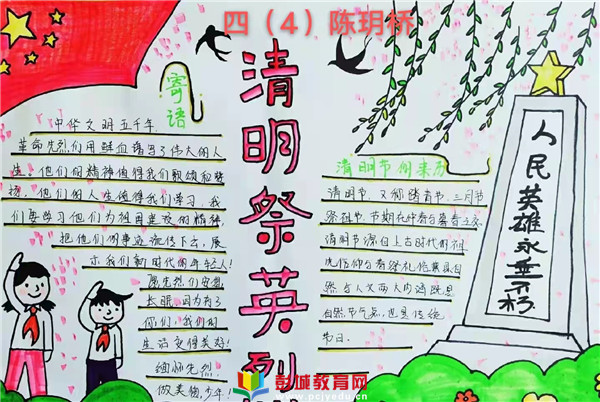 四（4）陈玥桥
清明祭英烈
寄语
中华文明五千年
革命先烈们用鲜血谱写了伟大的人
生，他们的精神值得我们歌颂和赞
扬，他们的人生值得我们学习，我
们要学习他们为祖国建设的精神，
把他们的事迹流传下去，展
示我们新时代的年轻人！
愿先烈们安息
长眠，因为有了
你们，我们的
生活变得美好！
缅怀先烈
做美德少年！
清明节的来历
清明节，又称踏青节、三月节
祭祖节，节期在仲春与暮春之交
清明节源自上古时代的祖
先信仰与春祭礼俗兼具自
然与人文两大内涵既是
自然节气点，也是传统
节日。
人民英雄永垂不朽
彭城教育网
www.pcjyedu.cn